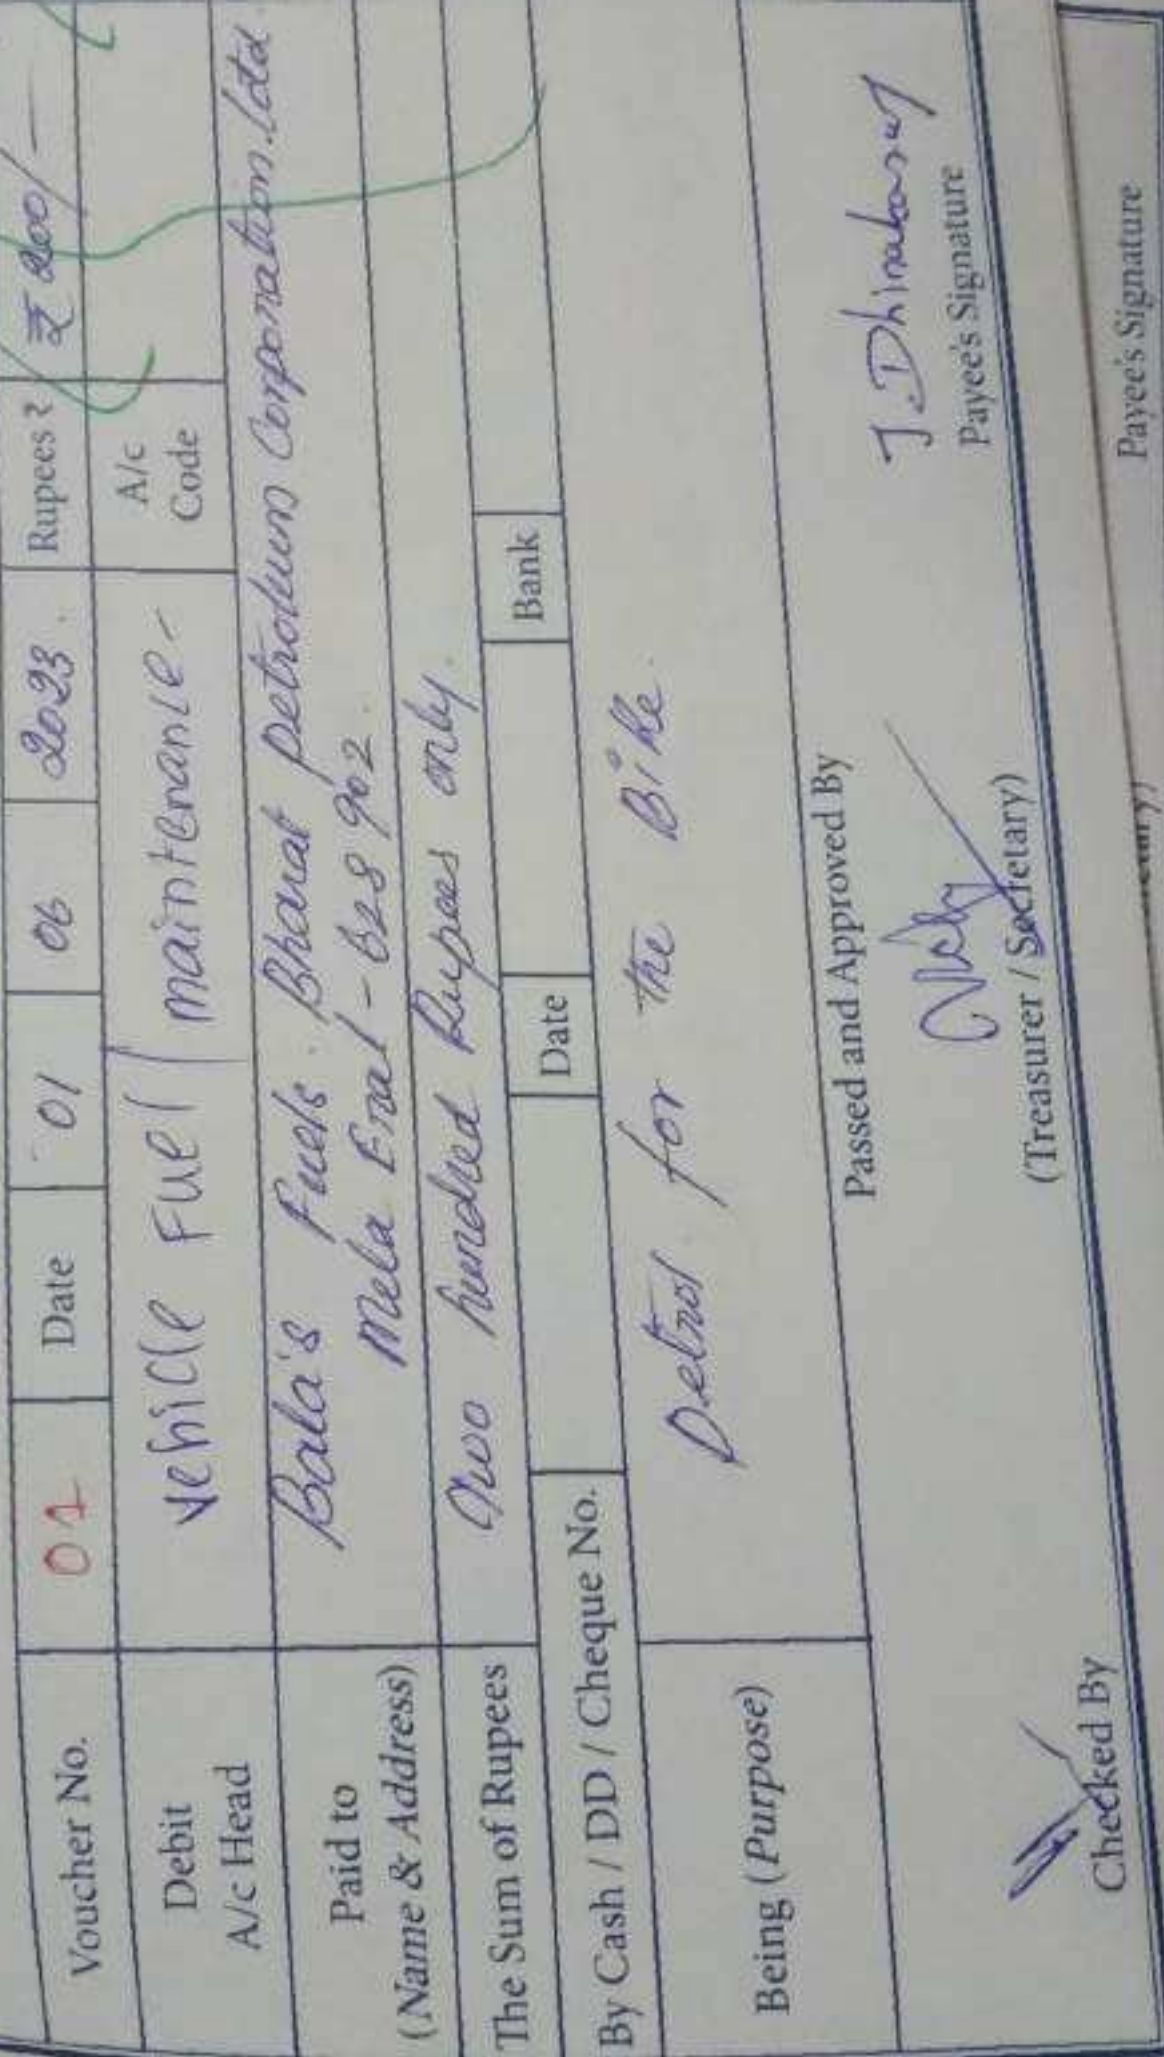 Voucher No. 01 Date 01 06 2023 Rupees ₹ ₹ 200/-
Debit A/c Head Vehicle Fuel / maintenance A/c Code
Paid to (Name & Address) Bala's Fuels. Bharat petroleum Corporation.Ltd
Mela Eral - 628 902.
The Sum of Rupees Two hundred Rupees only.
By Cash / DD / Cheque No. Date Bank
Being (Purpose) Petrol for the Bike.
Passed and Approved By
J. Dhinakaran
Checked By (Treasurer / Secretary) Payee's Signature
Payee's Signature